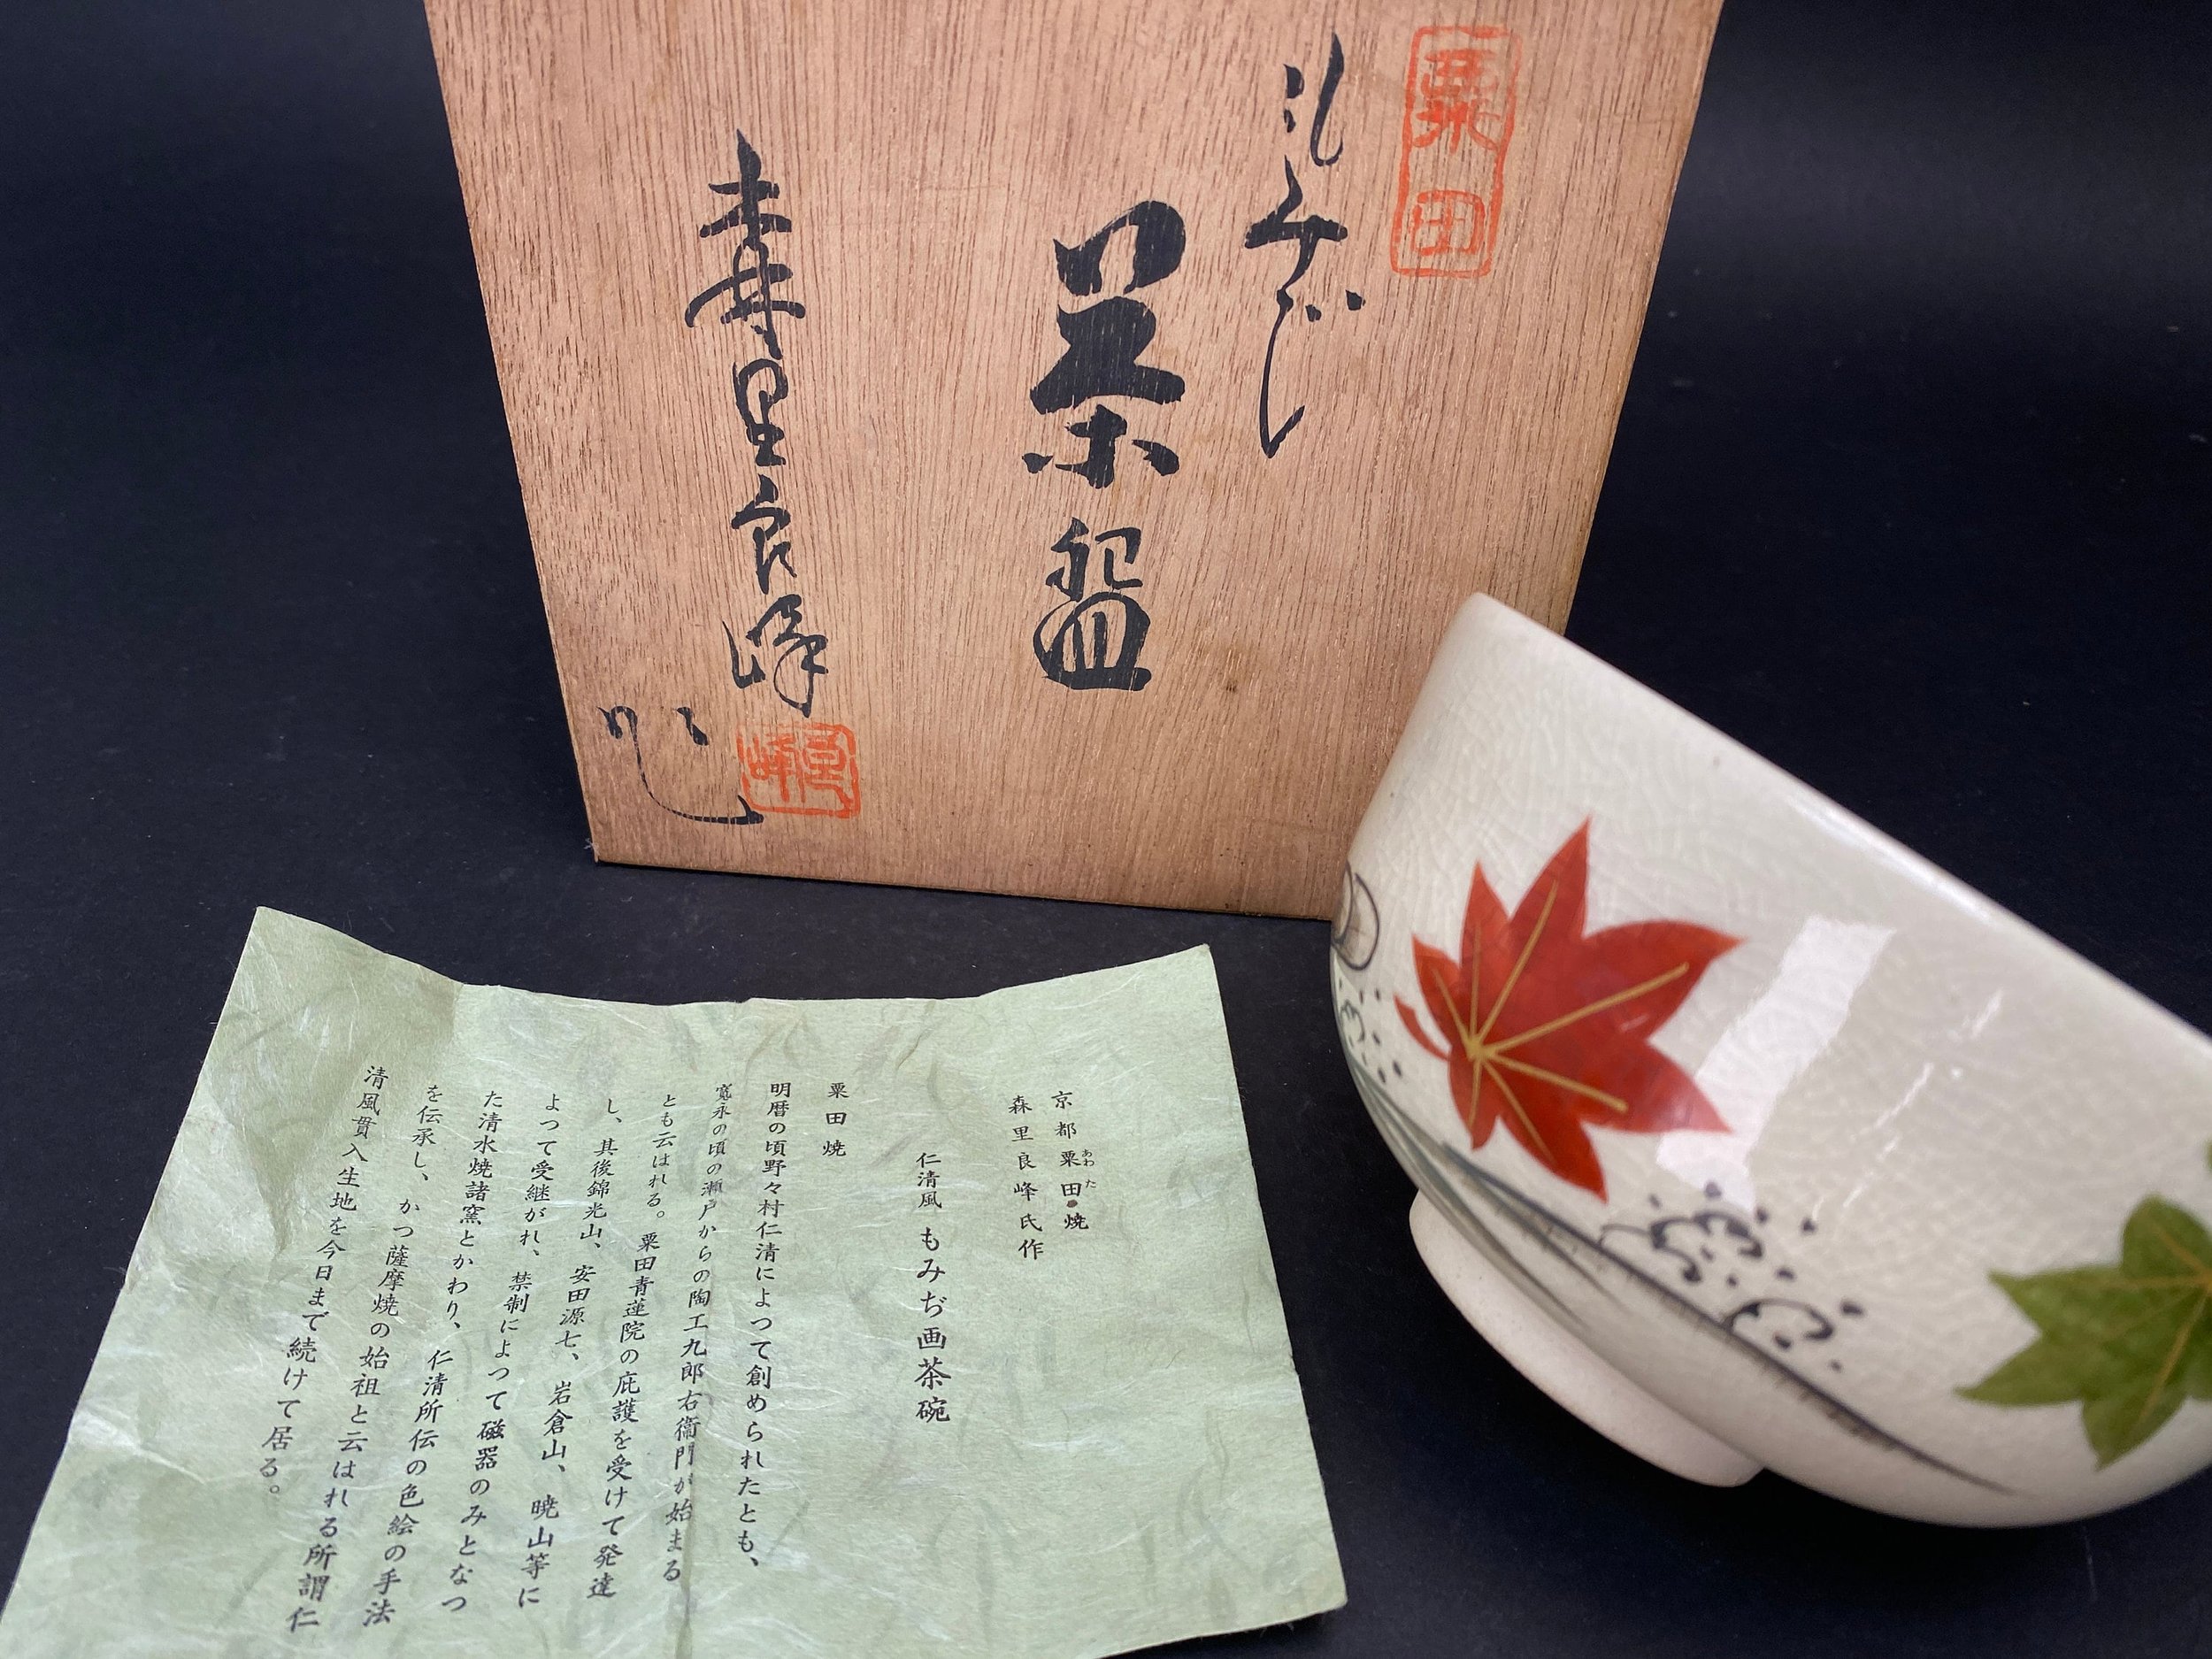 粟田
もみぢ
茶盌
森里良峰
作
良峰
京都粟田焼
あわた
森里良峰氏作
仁清風 もみぢ画茶碗
粟田焼
明暦の頃野々村仁清によつて創められたとも、
寛永の頃の瀬戸からの陶工九郎右衞門が始まる
とも云はれる。粟田青蓮院の庇護を受けて発達
し、其後錦光山、安田源七、岩倉山、暁山等に
よつて受継がれ、禁制によつて磁器のみとなつ
た清水焼諸窯とかわり、仁清所伝の色絵の手法
を伝承し、かつ薩摩焼の始祖と云はれる所謂仁
清風貫入生地を今日まで続けて居る。